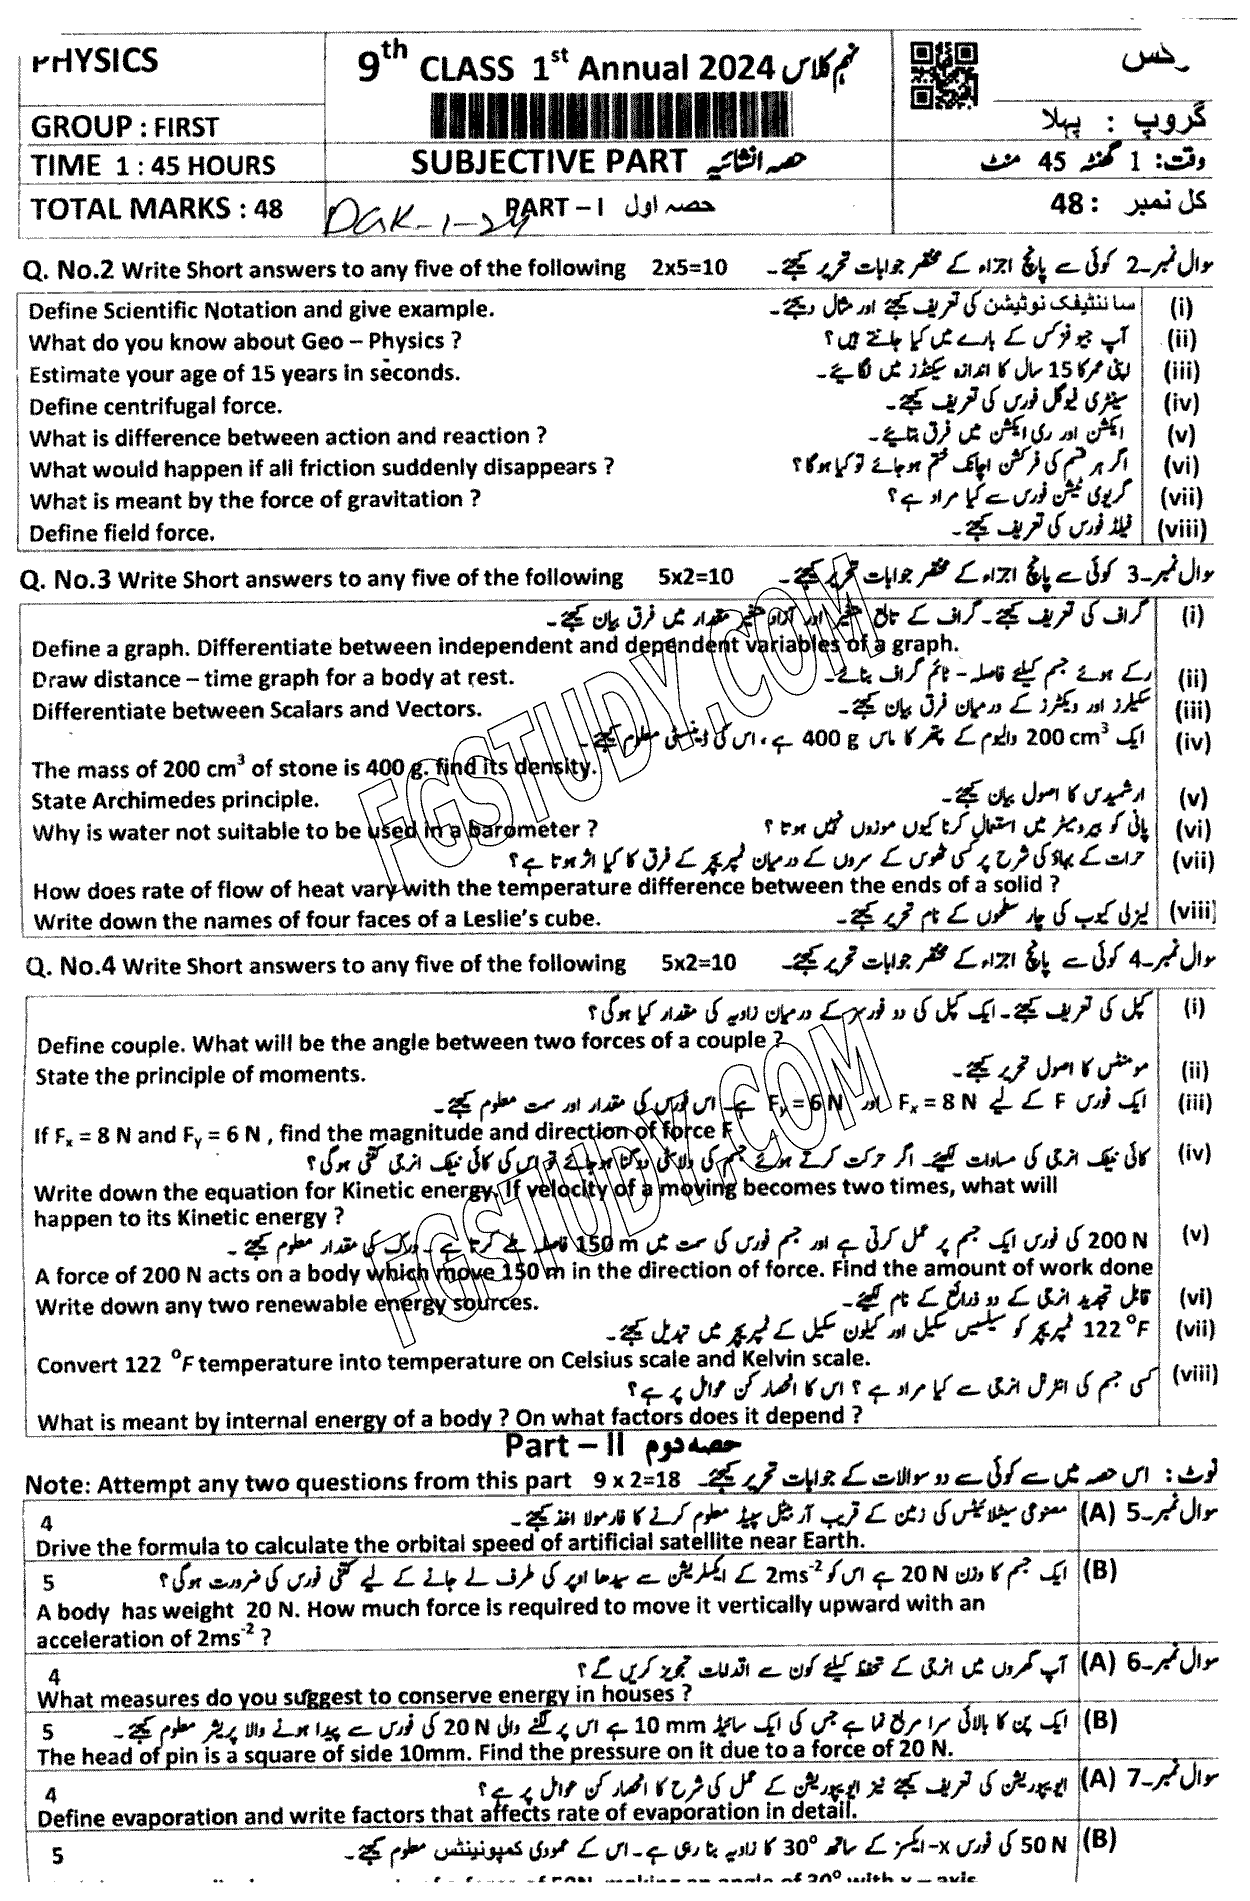 PHYSICS
9th CLASS 1st Annual 2024 نہم کلاس
GROUP : FIRST
گروپ : پہلا
TIME 1 : 45 HOURS
SUBJECTIVE PART حصہ انشائیہ
وقت: 1 گھنٹہ 45 منٹ
TOTAL MARKS : 48
DGK-1-24
PART – I حصہ اول
کل نمبر : 48
Q. No.2 Write Short answers to any five of the following 2x5=10 سوال نمبر۔2 کوئی سے پانچ اجزاء کے مختصر جوابات تحریر کیجئے۔
Define Scientific Notation and give example. سائنٹیفک نوٹیشن کی تعریف کیجئے اور مثال دیجئے۔ (i)
What do you know about Geo – Physics ? آپ جیو فزکس کے بارے میں کیا جانتے ہیں؟ (ii)
Estimate your age of 15 years in seconds. اپنی عمر کا 15 سال کا اندازہ سیکنڈز میں لگائیے۔ (iii)
Define centrifugal force. سینٹری فیوگل فورس کی تعریف کیجئے۔ (iv)
What is difference between action and reaction ? ایکشن اور ری ایکشن میں فرق بتائیے۔ (v)
What would happen if all friction suddenly disappears ? اگر ہر قسم کی فرکشن اچانک ختم ہو جائے تو کیا ہوگا؟ (vi)
What is meant by the force of gravitation ? گریوی ٹیشن فورس سے کیا مراد ہے؟ (vii)
Define field force. فیلڈ فورس کی تعریف کیجئے۔ (viii)
Q. No.3 Write Short answers to any five of the following 5x2=10 سوال نمبر۔3 کوئی سے پانچ اجزاء کے مختصر جوابات تحریر کیجئے۔
گراف کی تعریف کیجئے۔ گراف کے تابع متغیر اور آزاد متغیر مقدار میں فرق بیان کیجئے۔ (i)
Define a graph. Differentiate between independent and dependent variables of a graph.
Draw distance – time graph for a body at rest. رکے ہوئے جسم کیلئے فاصلہ - ٹائم گراف بنائے۔ (ii)
Differentiate between Scalars and Vectors. سکیلرز اور ویکٹرز کے درمیان فرق بیان کیجئے۔ (iii)
ایک 200 cm3 والیوم کے پتھر کا ماس 400 g ہے، اس کی ڈینسٹی معلوم کیجئے۔ (iv)
The mass of 200 cm3 of stone is 400 g. find its density.
State Archimedes principle. ارشمیدس کا اصول بیان کیجئے۔ (v)
Why is water not suitable to be used in a barometer ? پانی کو بیرومیٹر میں استعمال کرنا کیوں موزوں نہیں ہوتا ؟ (vi)
حرات کے بہاؤ کی شرح پر کسی ٹھوس کے سروں کے درمیان ٹمپریچر کے فرق کا کیا اثر ہوتا ہے؟ (vii)
How does rate of flow of heat vary with the temperature difference between the ends of a solid ?
Write down the names of four faces of a Leslie's cube. لیزلی کیوب کی چار سطحوں کے نام تحریر کیجئے۔ (viii)
Q. No.4 Write Short answers to any five of the following 5x2=10 سوال نمبر۔4 کوئی سے پانچ اجزاء کے مختصر جوابات تحریر کیجئے۔
کپل کی تعریف کیجئے۔ ایک کپل کی دو فورسز کے درمیان زاویہ کی مقدار کیا ہوگی؟ (i)
Define couple. What will be the angle between two forces of a couple ?
State the principle of moments. مومنٹس کا اصول تحریر کیجئے۔ (ii)
ایک فورس F کے لیے Fx = 8 N اور Fy = 6 N ہے۔ اس فورس کی مقدار اور سمت معلوم کیجئے۔ (iii)
If Fx = 8 N and Fy = 6 N , find the magnitude and direction of force F
کائی نیٹک انرجی کی مساوات لکھیئے۔ اگر حرکت کرتے ہوئے جسم کی ولاسٹی دوگنا ہو جائے تو اس کی کائی نیٹک انرجی کتنی ہوگی؟ (iv)
Write down the equation for Kinetic energy. If velocity of a moving becomes two times, what will
happen to its Kinetic energy ?
200 N کی فورس ایک جسم پر عمل کرتی ہے اور جسم فورس کی سمت میں 150 m فاصلہ طے کرتا ہے۔ ورک کی مقدار معلوم کیجئے۔ (v)
A force of 200 N acts on a body which move 150 m in the direction of force. Find the amount of work done
Write down any two renewable energy sources. قابل تجدید انرجی کے دو ذرائع کے نام لکھیئے۔ (vi)
122 °F ٹمپریچر کو سیلسیس سکیل اور کیلون سکیل کے ٹمپریچر میں تبدیل کیجئے۔ (vii)
Convert 122 °F temperature into temperature on Celsius scale and Kelvin scale.
کسی جسم کی انٹرنل انرجی سے کیا مراد ہے ؟ اس کا انحصار کن عوامل پر ہے؟ (viii)
What is meant by internal energy of a body ? On what factors does it depend ?
Part – II حصہ دوم
Note: Attempt any two questions from this part 9 x 2=18 نوٹ: اس حصہ میں سے کوئی سے دو سوالات کے جوابات تحریر کیجئے۔
4 مصنوعی سیٹلائیٹس کی زمین کے قریب آربیٹل سپیڈ معلوم کرنے کا فارمولا اخذ کیجئے۔ سوال نمبر۔5 (A)
Drive the formula to calculate the orbital speed of artificial satellite near Earth.
5 ایک جسم کا وزن 20 N ہے اس کو 2ms-2 کے ایکسلریشن سے سیدھا اوپر کی طرف لے جانے کے لیے کتنی فورس کی ضرورت ہوگی؟ (B)
A body has weight 20 N. How much force is required to move it vertically upward with an
acceleration of 2ms-2 ?
4 آپ گھروں میں انرجی کے تحفظ کیلئے کون سے اقدامات تجویز کریں گے؟ سوال نمبر۔6 (A)
What measures do you suggest to conserve energy in houses ?
5 ایک پن کا بالائی سرا مربع نما ہے جس کی ایک سائیڈ 10 mm ہے اس پر لگنے والی 20 N کی فورس سے پیدا ہونے والا پریشر معلوم کیجئے۔ (B)
The head of pin is a square of side 10mm. Find the pressure on it due to a force of 20 N.
4 ایویپوریشن کی تعریف کیجئے نیز ایویپوریشن کے عمل کی شرح کا انحصار کن عوامل پر ہے؟ سوال نمبر۔7 (A)
Define evaporation and write factors that affects rate of evaporation in detail.
5 50 N کی فورس x-ایکسز کے ساتھ 30° کا زاویہ بنا رہی ہے۔ اس کے عمودی کمپونینٹس معلوم کیجئے۔ (B)
FGSTUDY.COM
FGSTUDY.COM